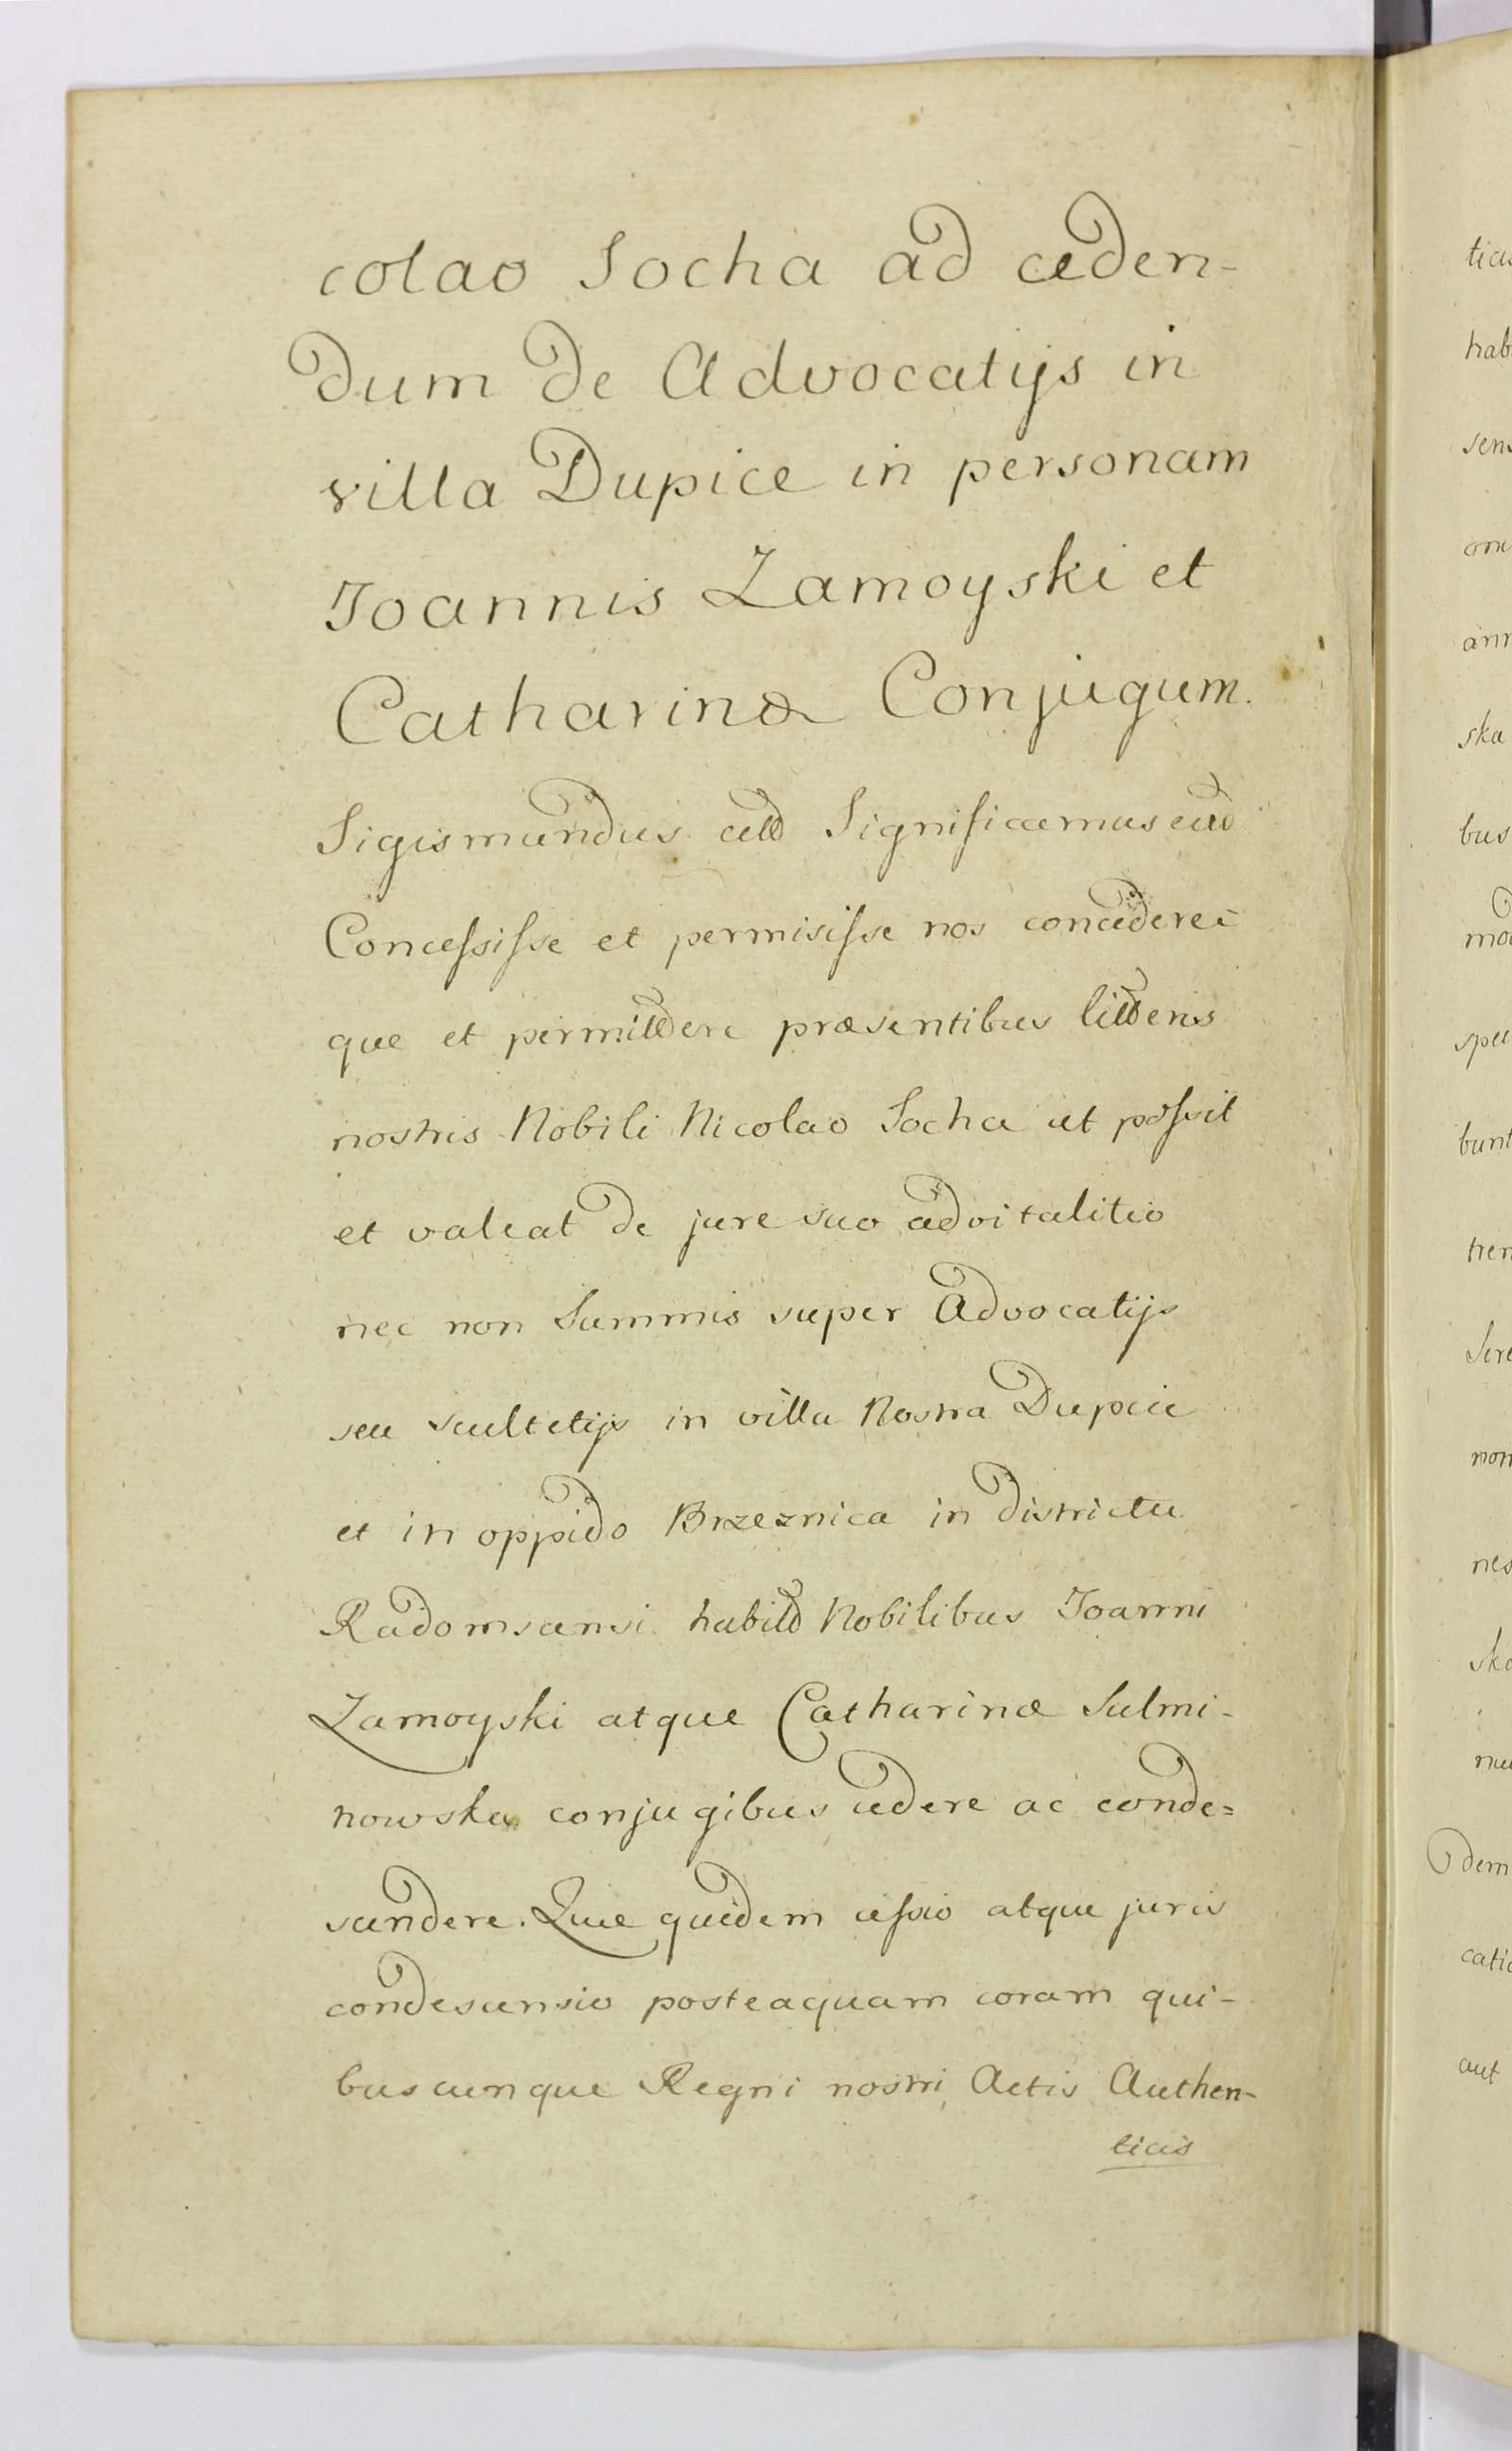 colao Socha ad ceden-
dum de Advocatijs in
villa Dupice in personam
Joannis Zamoyski et
Catharinæ Conjugum.
Sigismundus Significamus
Concessisse et permisisse nos concedere
que et permittere præsentibus litteris
nostris Nobili Nicolao Socha ut possit
et valeat de jure suo advitalitio
nec non Summis super Advocatijs
seu scultetijs in villa Nostra Dupice
et in oppido Brzeznica in districtu
Radomscensi habitt Nobilibus Joanni
Zamoyski atque Catharinæ Sulmi-
nowska conjugibus cedere ac conde=
scendere. Quæ quidem cessio atque juris
condescensio posteaquam coram qui-
buscunque Regni nostri Actis Authen-
ticis
tici
hab
sen
ann
ska
bus
mo
spe
bunt
tren
Sere
non
nes
ska
dem
catio
aut